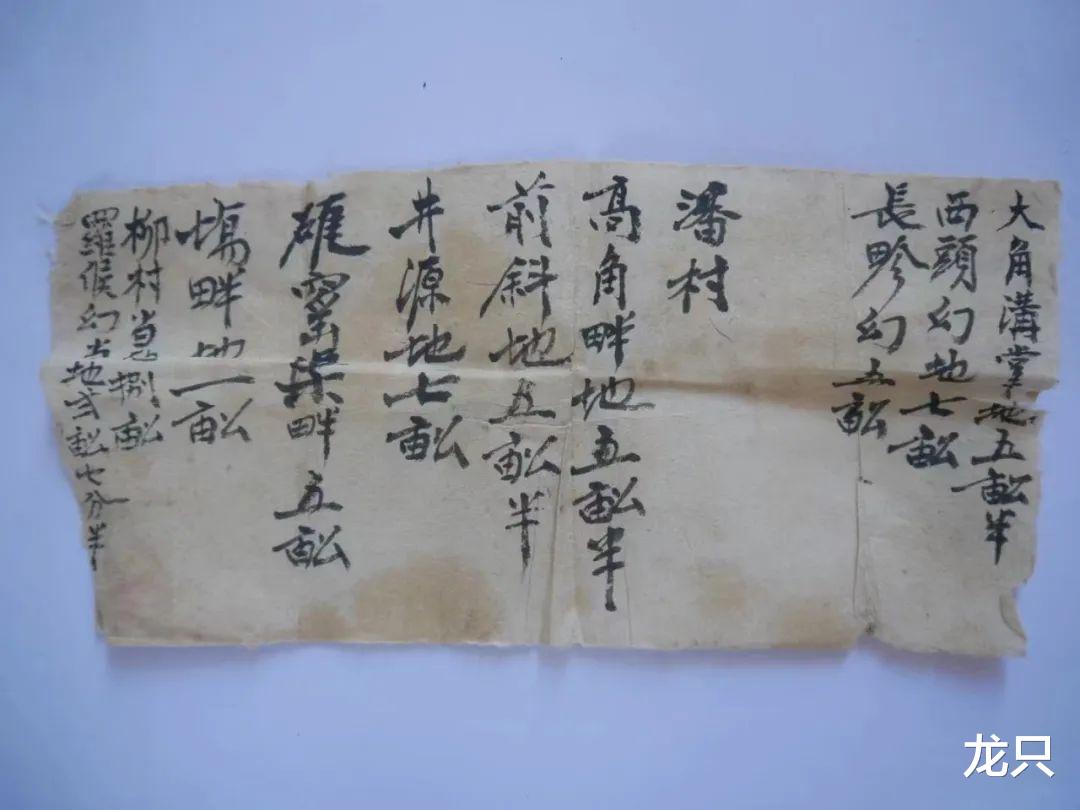 大角溝掌地五畝半
西頭幻地七畝
長畛幻五畝
潘村
高角畔地五畝半
前斜地五畝半
井源地七畝
雄窑渠畔五畝
塲畔地一畝
柳村 捌畝
羅候幻 地弍畝七分半
龙只